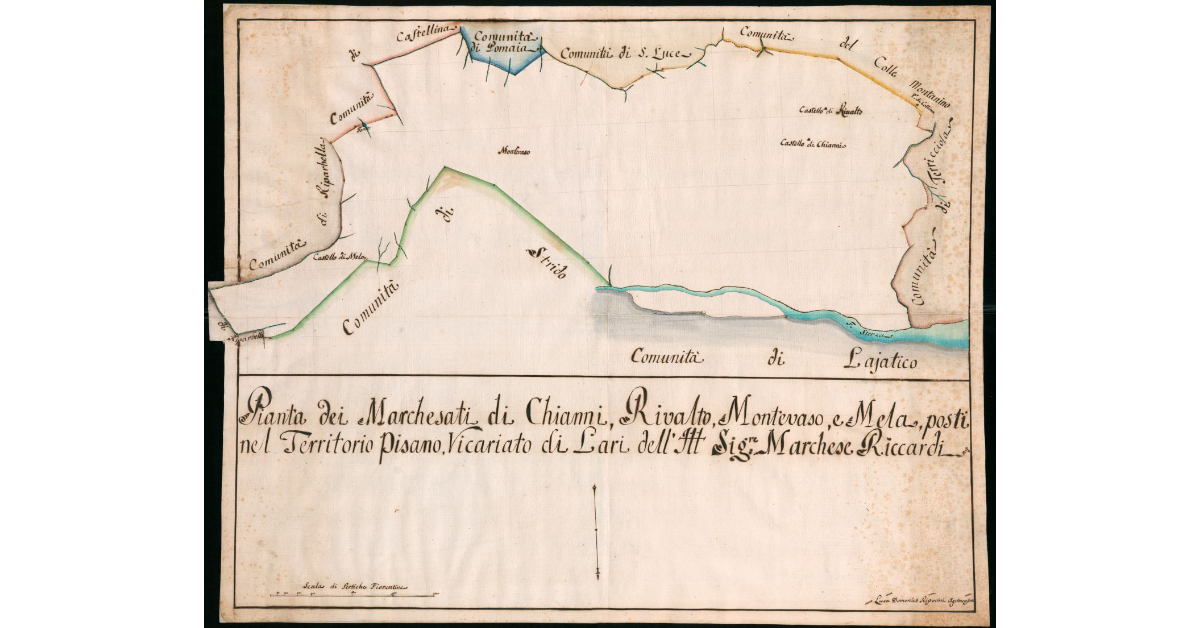 Comunità di Castellina
Comunità di Pomaia
Comunità di S. Luce
Comunità del Colle Montanino
Castello di Rivalto
Castello di Chianni
Montevaso
Comunità di Terricciola
Comunità di Riparbella
Castello di Mela
Comunità di Strido
Comunità di Lajatico
Pianta dei Marchesati di Chianni, Rivalto, Montevaso, e Mela, posti
nel Territorio Pisano, Vicariato di Lari dell' Sig.re Marchese Riccardi
Scala di Pertiche Fiorentine